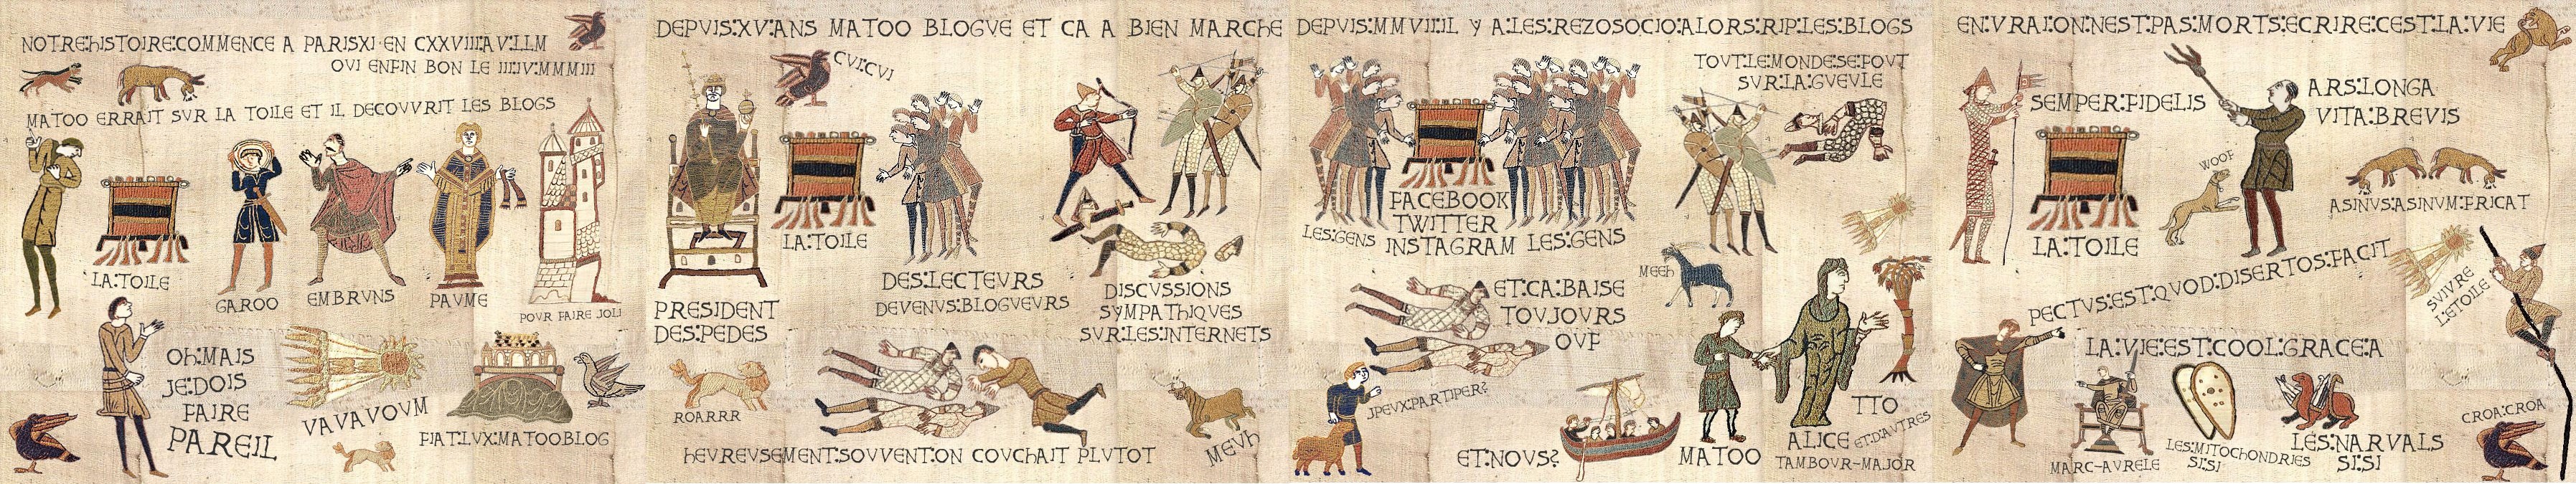 NOTRE:HISTOIRE:COMMENCE A PARISXI·EN CXXVIII:AV:LLM
OVI ENFIN BON LE IIII:IV:MMMIII
MATOO ERRAIT SVR LA TOILE ET IL DECOVVRIT LES BLOGS
LA:TOILE
GAROO
EMBRVNS
PAVME
POVR FAIRE JOLI
OH:MAIS
JE:DOIS
FAIRE
PAREIL
VAVAVOVM
FIAT:LVX:MATOOBLOG
DEPVIS:XV:ANS MATOO BLOGVE ET CA A BIEN MARCHE
CVI:CVI
LA:TOILE
PRESIDENT
DES:PEDES
DES:LECTEVRS
DEVENVS:BLOGVEVRS
DISCVSSIONS
SYMPATHIQVES
SVR:LES:INTERNETS
ROARRR
MEVH
HEVREVSEMENT:SOVVENT:ON COVCHAIT PLVTOT
DEPVIS:MMVIII:IL Y A:LES:REZOSOCIO:ALORS:RIP:LES:BLOGS
TOVT:LE:MONDE:SE:FOVT
SVR:LA:GVEVLE
LES:GENS
FACEBOOK
TWITTER
INSTAGRAM
LES:GENS
ET:CA:BAISE
TOVJOVRS
OVF
MEEH
JPEVX:PARTIPER?
ET:NOVS?
MATOO
ALICE
TAMBOVR-MAJOR
TTO
ET:D'AVTRES
EN:VRAI:ON:NEST:PAS:MORTS:ECRIRE:CEST:LA:VIE
SEMPER:FIDELIS
ARS:LONGA
VITA:BREVIS
LA:TOILE
WOOF
ASINVS:ASINVM:FRICAT
PECTVS:EST:QVOD:DISERTOS:FACIT
SVIVRE
L'ETOILE
LA:VIE:EST:COOL:GRACE:A
MARC-AVRELE
LES:MITOCHONDRIES
SI:SI
LES:NARVALS
SI:SI
CROA:CROA